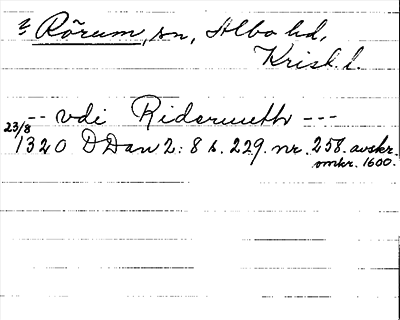 Rörum, sn, Albo hd,
Krist. l.
-- vdi Risermeth ---
23/8
1320 DDan 2: 8 s. 229. nr. 258. avskr.
omkr. 1600.